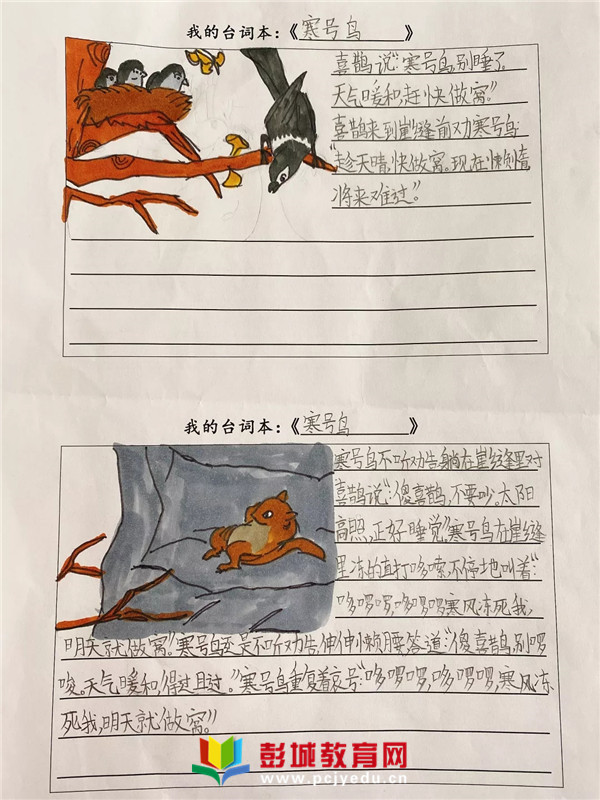 我的台词本:《寒号鸟》
喜鹊说“寒号鸟,别睡了
天气暖和,赶快做窝。”
喜鹊来到崖缝前劝寒号鸟:
“趁天晴,快做窝。现在懒惰,
将来难过。”
我的台词本:《寒号鸟》
寒号鸟不听劝告躺在崖缝里对
喜鹊说:“傻喜鹊,不要吵。太阳
高照,正好睡觉。”寒号鸟在崖缝
里冻的直打哆嗦,不停地叫着:“
哆啰啰,哆啰啰寒风冻死我,
明天就做窝。”寒号鸟还是不听劝告,伸伸懒腰答道:“傻喜鹊,别啰
唆。天气暖和,得过且过。”寒号鸟重复着哀号:“哆啰啰,哆啰啰,寒风冻
死我,明天就做窝。”
彭城教育网
www.pcjyedu.cn